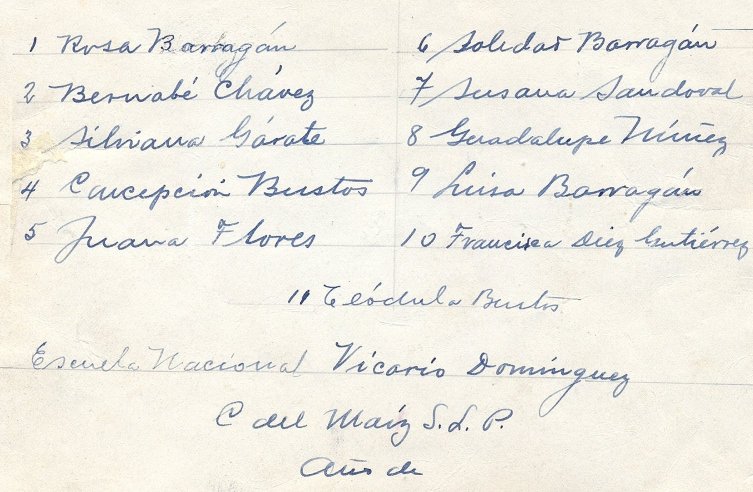 1 Rosa Barragán
2 Bernabé Chávez
3 Silviana Gárate
4 Concepción Bustos
5 Juana Flores
6 Soledad Barragán
7 Susana Sandoval
8 Guadalupe Núñez
9 Luisa Barragán
10 Francisca Diez Gutiérrez
11 Teódula Bustos
Escuela Nacional Vicario Domínguez
C del Maíz S.L.P.
Año de